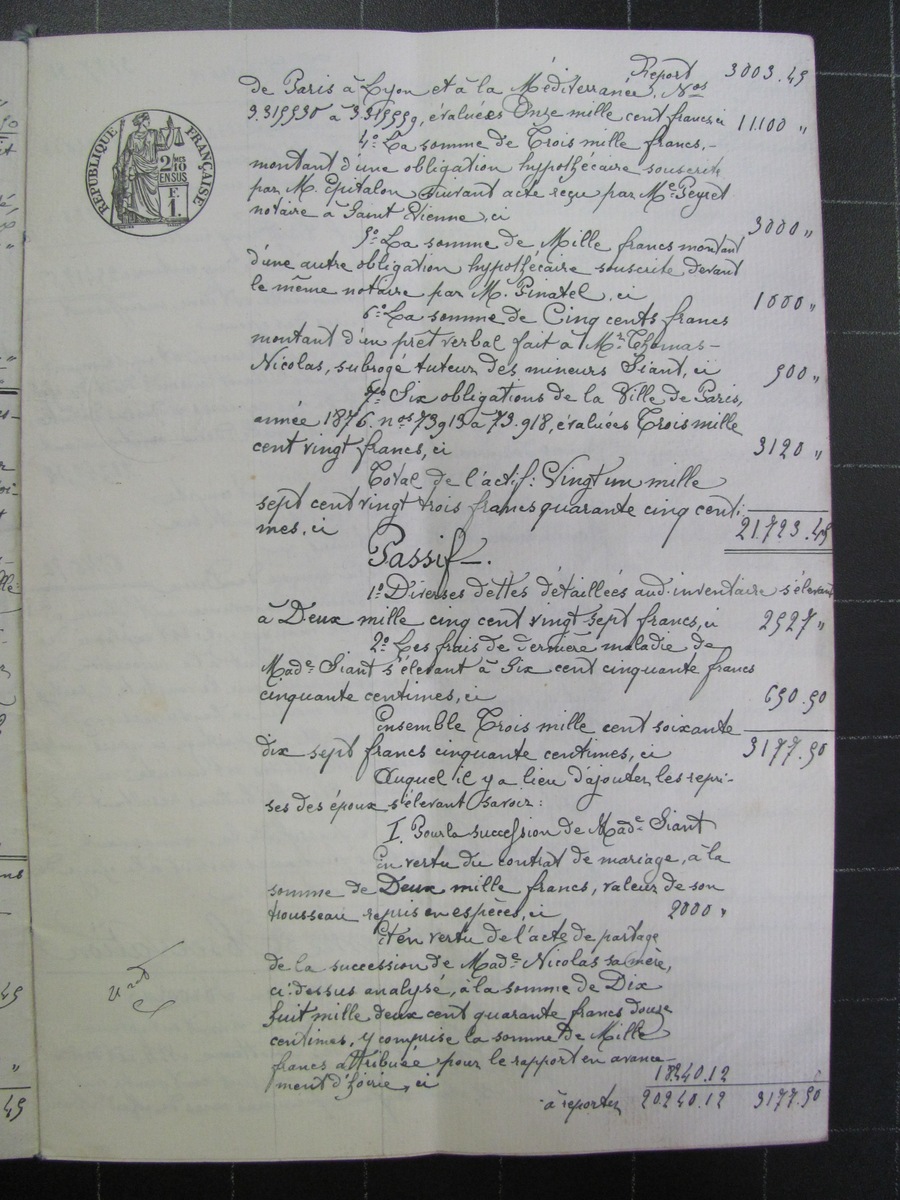 Report 3003.45
de Paris à Lyon et à la Méditerranée, Nos
à évaluées Onze mille cent francs, ci 11100 "
4º La somme de Trois mille francs,
montant d'une obligation hypothécaire souscrite
par M. Epitalon suivant acte reçu par Me Peyret
notaire à Saint Etienne, ci 3000 "
5º La somme de Mille francs montant
d'une autre obligation hypothécaire souscrite devant
le même notaire par M. Pinatel, ci 1000 "
6º La somme de Cinq cents francs
montant d'un prêt verbal fait à Mr Thomas-
Nicolas, subrogé tuteur des mineurs Siant, ci 500 "
7º Six obligations de la Ville de Paris,
année 1876. nos 73913 à 73.918, évaluées Trois mille
cent vingt francs, ci 3120 "
Total de l'actif: Vingt un mille
sept cent vingt trois francs quarante cinq centi-
mes, ci 21.723.45
Passif.
1º Diverses dettes détaillées aud. inventaire s'élevant
à Deux mille cinq cent vingt sept francs, ci 2527 "
2º Les frais de dernière maladie de
Made Siant s'élevant à Six cent cinquante francs
cinquante centimes, ci 650.50
Ensemble Trois mille cent soixante
dix sept francs cinquante centimes, ci 3177.50
Auquel il y a lieu d'ajouter les repri-
ses des époux s'élevant savoir:
I. Pour la succession de Made Siant
En vertu du contrat de mariage, à la
somme de Deux mille francs, valeur de son
trousseau repris en espèces, ci 2000 "
Et en vertu de l'acte de partage
de la succession de Made Nicolas sa mère,
ci-dessus analysé, à la somme de Dix
huit mille deux cent quarante francs douze
centimes, y comprise la somme de Mille
francs attribuée pour le rapport en avance-
ment d'hoirie, ci 18240.12
à reporter 20240.12 3177.50
RÉPUBLIQUE FRANÇAISE
2/10 EN SUS
1 F.